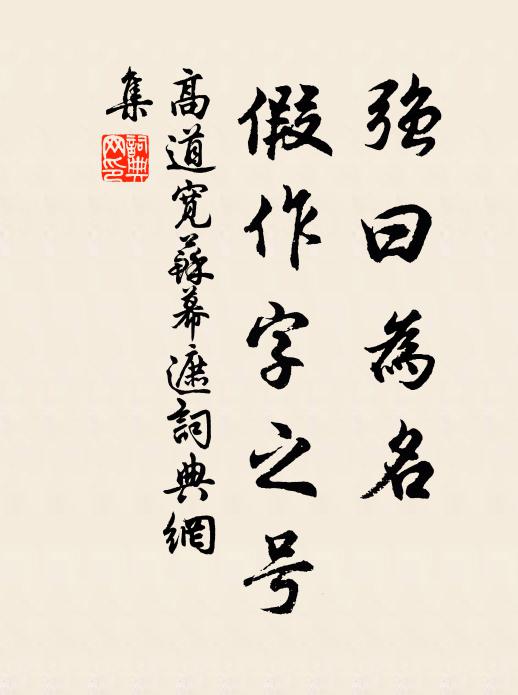 強曰為名
假作字之号
高道寬蘇幕遮詞典網
集
詞典
网印